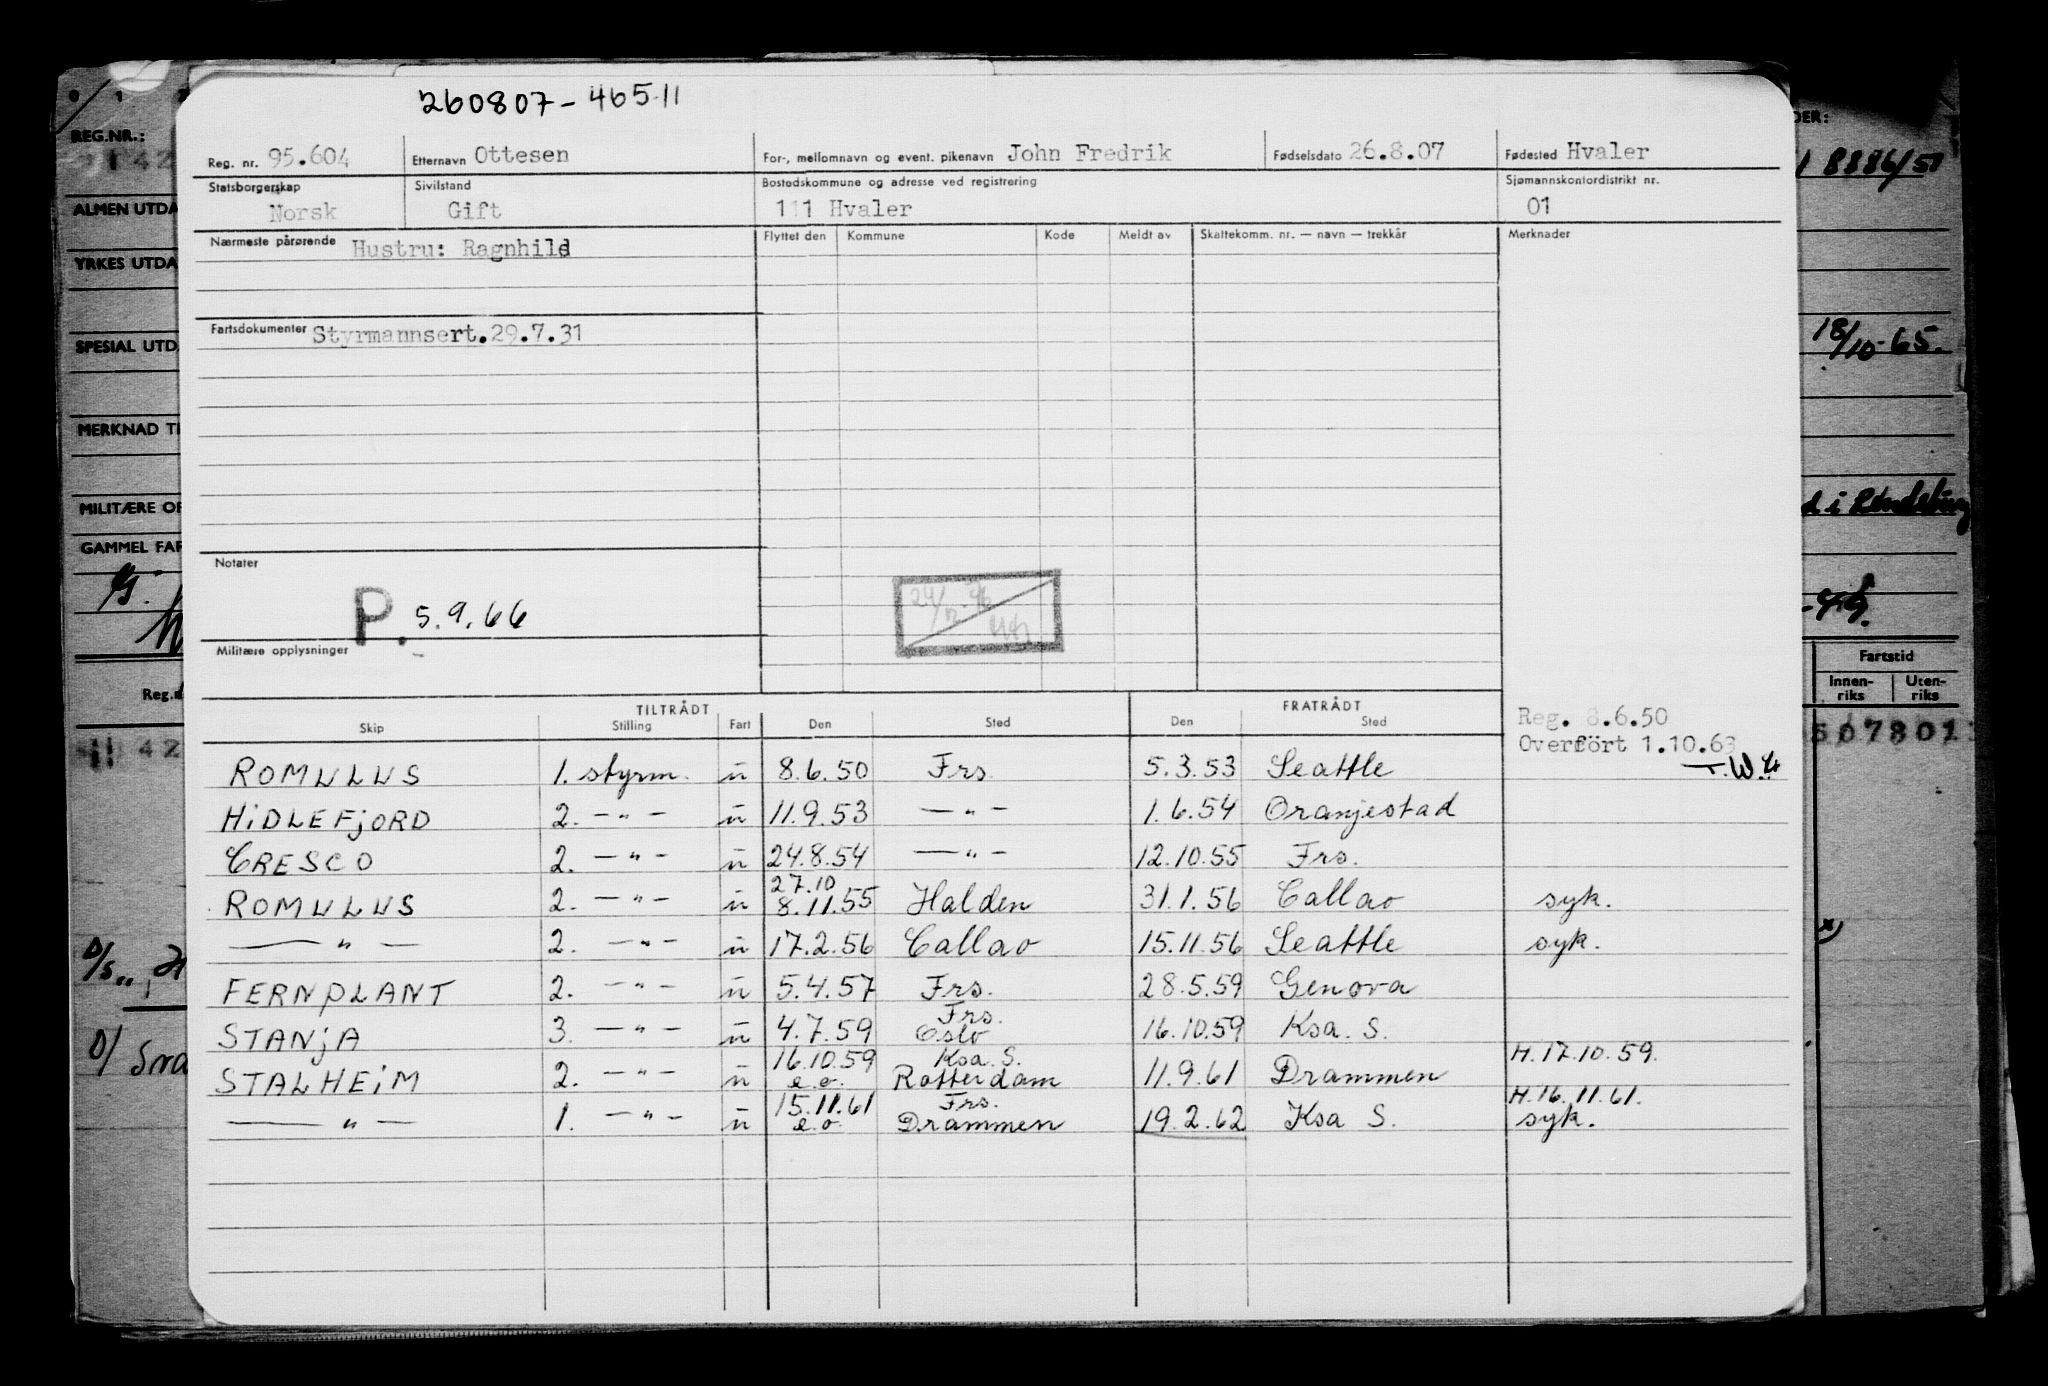 260807-46511
Reg. nr. 95.604 Etternavn Ottesen For-, mellomnavn og event. pikenavn John Fredrik Fødselsdato 26.8.07 Fødested Hvaler
Statsborgerskap Sivilstand Bostedskommune og adresse ved registrering Sjømannskontordistrikt nr.
Norsk Gift 111 Hvaler 01
Nærmeste pårørende Hustru: Ragnhild Flyttet den Kommune Kode Meldt av Skattekomm. nr. — navn — trekkår Merknader
Fartsdokumenter Styrmannsert.29.7.31
Notater
P. 5.9.66
Militære opplysninger
TILTRÅDT FRATRÅDT
Skip Stilling Fart Den Sted Den Sted
Reg. 8.6.50
Overført 1.10.63
ROMULUS 1. styrm. u 8.6.50 Frs. 5.3.53 Seattle
HiDLEFjORD 2. — " — u 11.9.53 — " — 1.6.54 Oranjestad
CRESCO 2. — " — u 24.8.54 — " — 12.10.55 Frs.
27.10
ROMULUS 2. — " — u 8.11.55 Halden 31.1.56 Callao syk.
— " — 2. — " — u 17.2.56 Callao 15.11.56 Seattle syk.
FERNPLANT 2. — " — u 5.4.57 Frs. 28.5.59 Genova
Frs.
STANjA 3. — " — u 4.7.59 Oslo 16.10.59 Ksa. S.
16.10.59 Ksa. S. H.17.10.59.
STALHEiM 2. — " — u e.o. Rotterdam 11.9.61 Drammen
15.11.61 Frs. H.16.11.61.
— " — 1. — " — u e.o. Drammen 19.2.62 Ksa S. syk.
REG.NR.:
ALMEN UTDA
YRKES UTDA
SPESIAL UTD
MERKNAD TI
MILITÆRE OP
GAMMEL FAR
Reg.d
DER:
8886/51
18/10-65.
Fartstid
Innen-riks Uten-riks